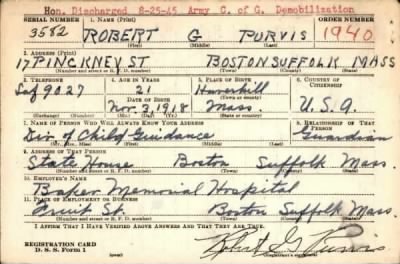 Hon. Discharged 8-25-45 Army C. of G. Demobilization
SERIAL NUMBER 1. NAME (Print) ORDER NUMBER
3582 ROBERT G PURVIS 1940
(First) (Middle) (Last)
2. ADDRESS (Print)
17 PINCKNEY ST BOSTON SUFFOLK MASS
(Number and street or R. F. D. number) (Town) (County) (State)
3. TELEPHONE 4. AGE IN YEARS 5. PLACE OF BIRTH 6. COUNTRY OF CITIZENSHIP
Laf 9027 21 Haverhill
DATE OF BIRTH (Town or county)
Nov. 3, 1918 Mass. U.S.A.
(Exchange) (Number) (Mo.) (Day) (Yr.) (State or country)
7. NAME OF PERSON WHO WILL ALWAYS KNOW YOUR ADDRESS 8. RELATIONSHIP OF THAT PERSON
Div. of Child Guidance Guardian
(Mr., Mrs., Miss) (First) (Middle) (Last)
9. ADDRESS OF THAT PERSON
State House Boston Suffolk Mass.
(Number and street or R. F. D. number) (Town) (County) (State)
10. EMPLOYER'S NAME
Baker Memorial Hospital
11. PLACE OF EMPLOYMENT OR BUSINESS
Fruit St. Boston Suffolk Mass.
(Number and street or R. F. D. number) (Town) (County) (State)
I AFFIRM THAT I HAVE VERIFIED ABOVE ANSWERS AND THAT THEY ARE TRUE.
REGISTRATION CARD
D. S. S. Form 1
Robert G. Purvis
(Registrant's signature)